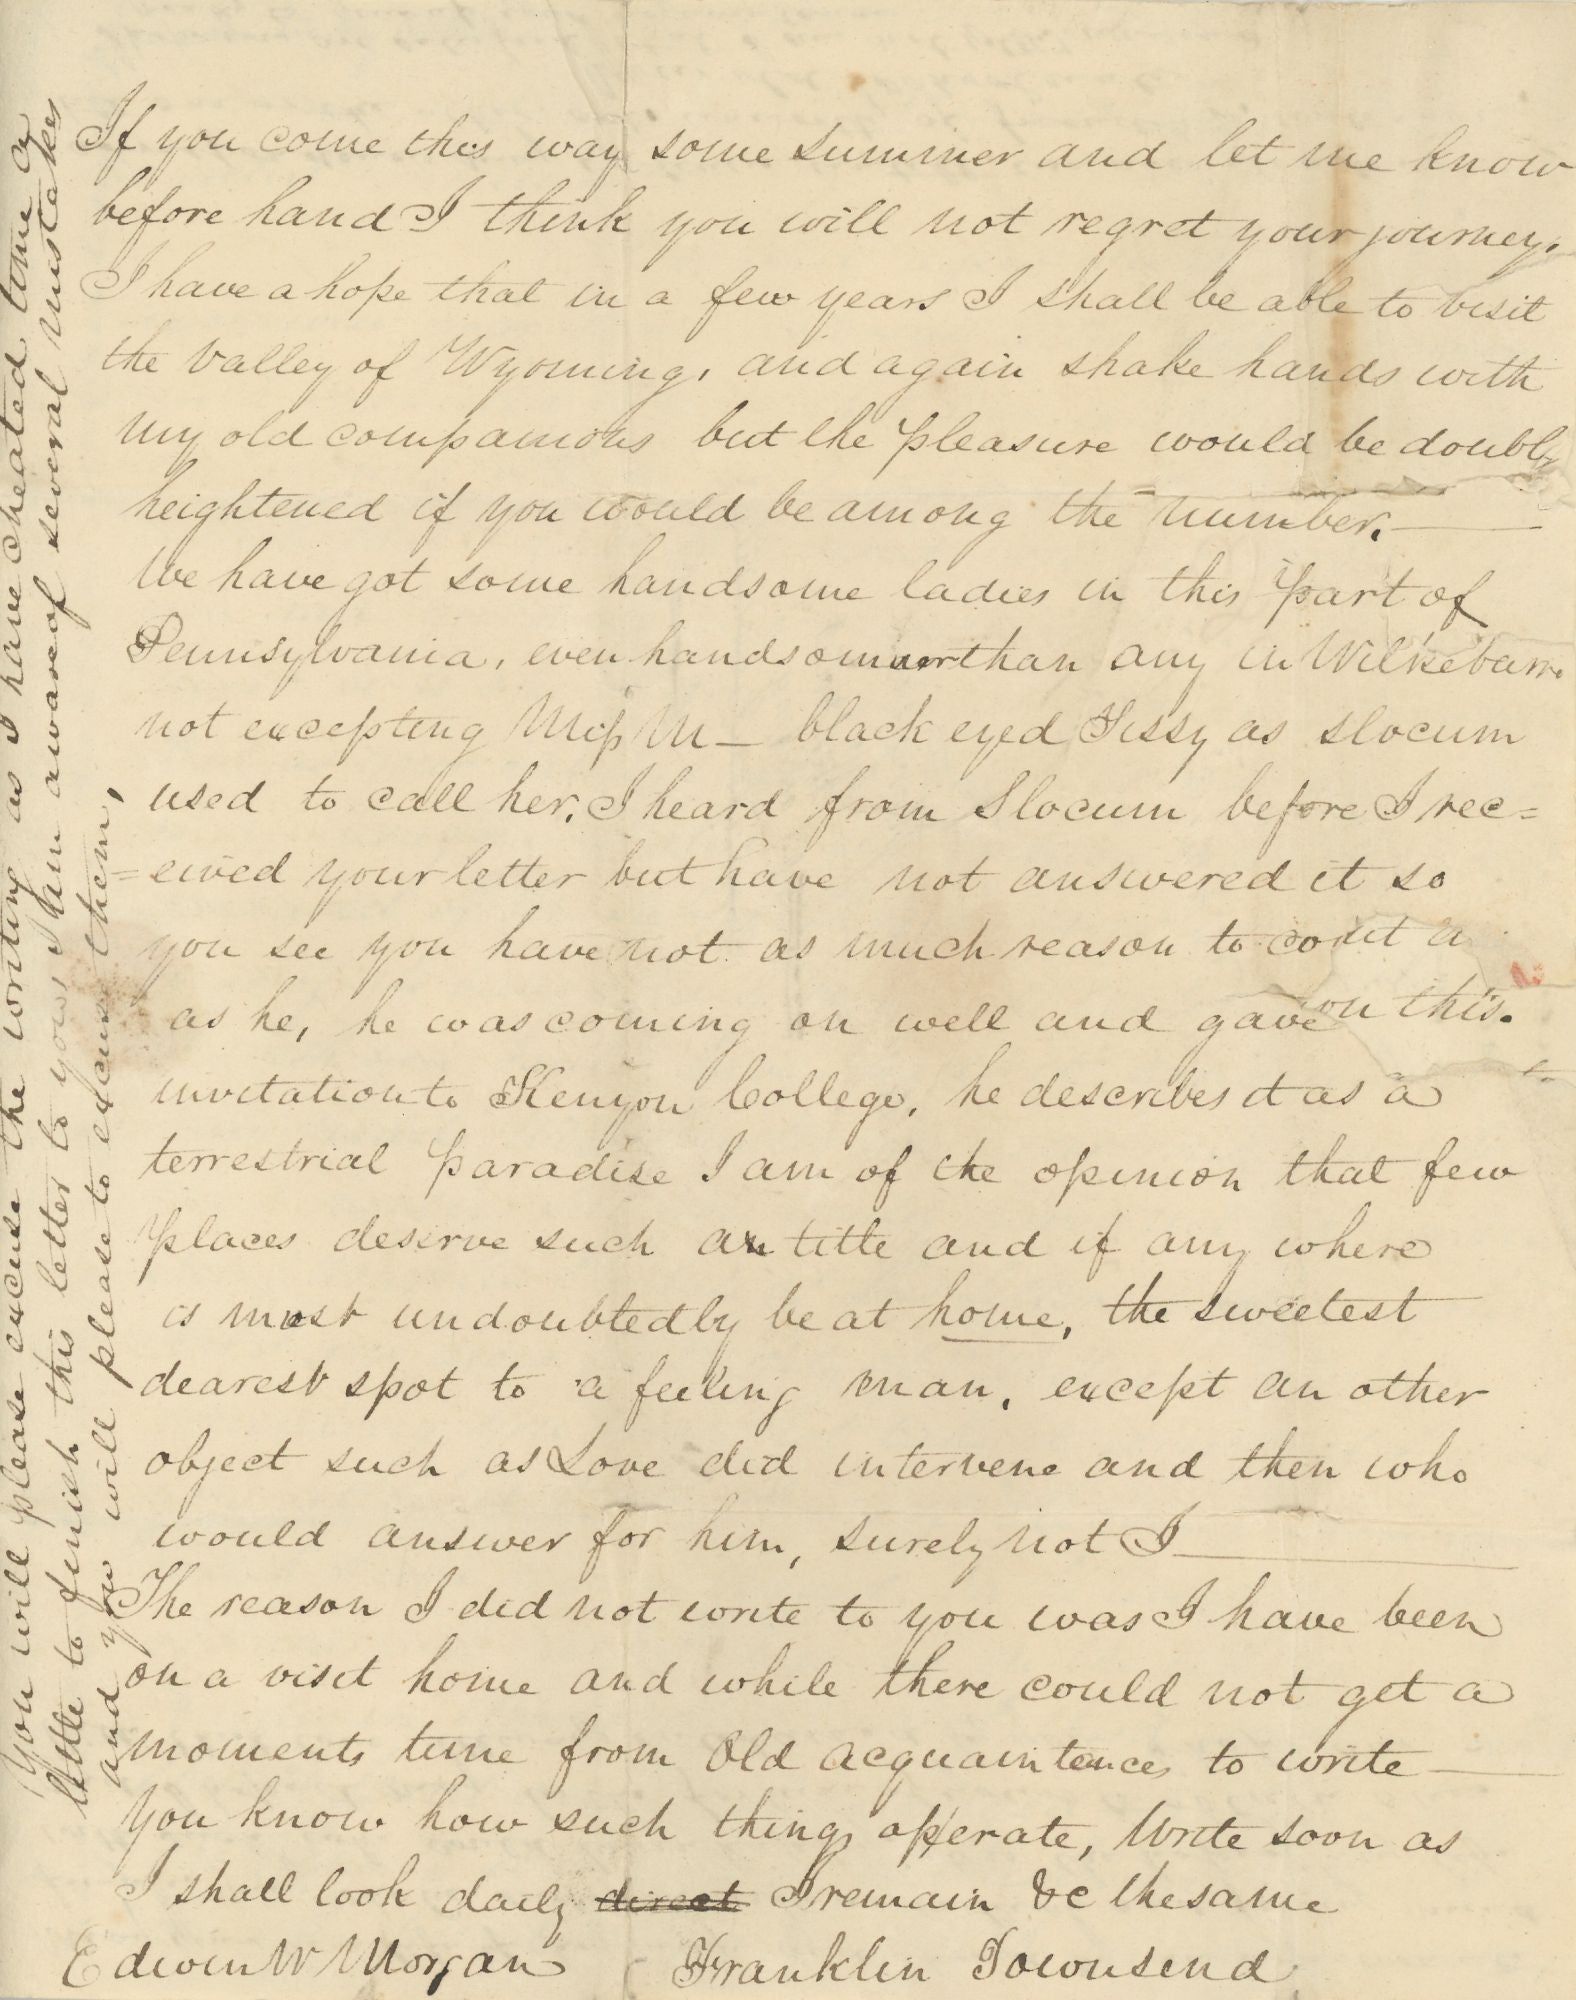 If you come this way some summer and let me know
before hand I think you will not regret your journey.
I have a hope that in a few years I shall be able to visit
the valley of Wyoming, and again shake hands with
my old companions but the pleasure would be doubly
heightened if you would be among the number.—
We have got some handsome ladies in this part of
Pennsylvania, even handsomer than any in Wilkebarre
not excepting Miss M— black eyed Tissy as Slocum
used to call her. I heard from Slocum before I rec=
=eived your letter but have not answered it so
you see you have not as much reason to
as he, he was coming on well and gave an
invitation to Kenyon College, he describes it as a
terrestrial paradise I am of the opinion that few
places deserve such a title and if any where
is must undoubtedly be at home, the sweetest
dearest spot to a feeling man, except an other
object such as Love did intervene and then who
would answer for him, surely not I—
The reason I did not write to you was I have been
on a visit home and while there could not get a
moments time from Old acquaintences to write—
You know how such things operate, Write soon as
I shall look daily direct I remain &c the same
Edwin W Morgan Franklin Townsend
You will please excuse the writing as I have cheated time a
little to finish this letter to you I am aware of several mistakes
and you will please to excuse them,